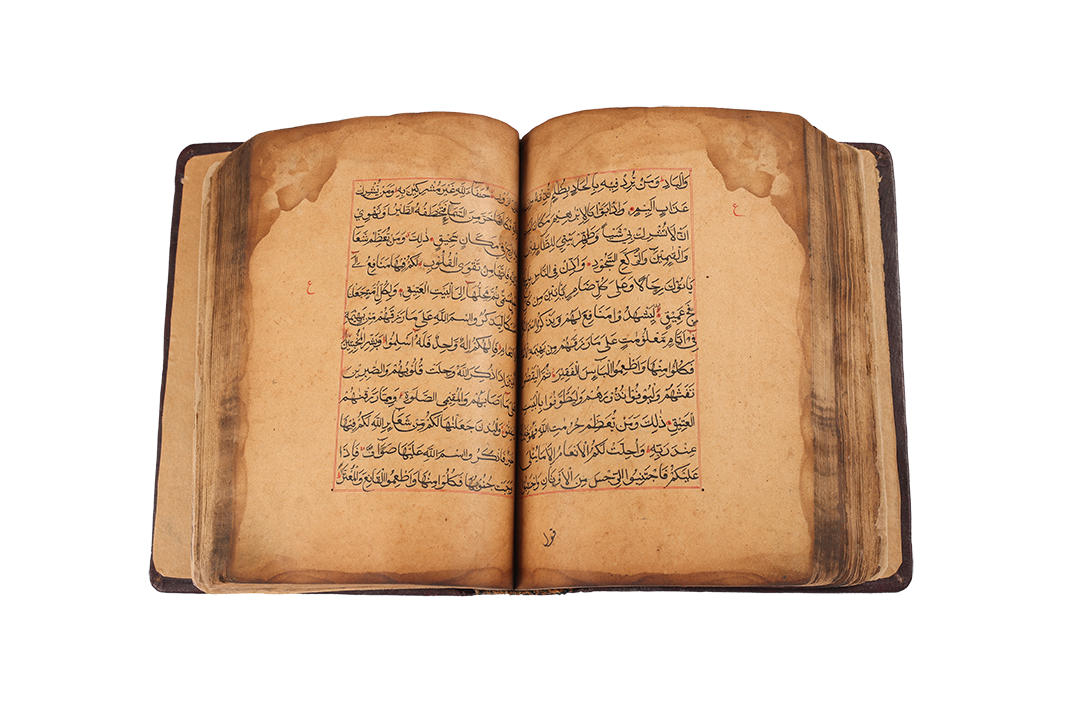 وَالْبَادِ وَمَنْ يُرِدْ فِيهِ بِاِلْحَادٍ بِظُلْمٍ نُذِقْهُ
عَذَابٍ اَلِيْمٍ وَاِذْ بَوَّأْنَا لِاِبْرٰهِيْمَ مَكَانَ
اَنْ لَا تُشْرِكْ بِيْ شَيْئًا وَطَهِّرْ بَيْتِيَ لِلطَّآئِفِيْنَ
وَالْقَآئِمِيْنَ وَالرُّكَّعِ السُّجُوْدِ وَاَذِّنْ فِي النَّاسِ
يَاْتُوْكَ رِجَالًا وَعَلٰى كُلِّ ضَامِرٍ يَاْتِيْنَ مِنْ
ع
فَجٍّ عَمِيْقٍ لِيَشْهَدُوْا مَنَافِعَ لَهُمْ وَيَذْكُرُوا
فِيْ اَيَّامٍ مَعْلُوْمٰتٍ عَلٰى مَا رَزَقَهُمْ مِنْ بَهِيْمَةِ
فَكُلُوْا مِنْهَا وَاَطْعِمُوا الْبَآئِسَ الْفَقِيْرَ ثُمَّ لْيَقْضُوْا
تَفَثَهُمْ وَلْيُوْفُوْا نُذُوْرَهُمْ وَلْيَطَّوَّفُوْا بِالْبَيْتِ
الْعَتِيْقِ ذٰلِكَ وَمَنْ يُعَظِّمْ حُرُمٰتِ اللّٰهِ فَهُوَ
عِنْدَ رَبِّهٖ وَاُحِلَّتْ لَكُمُ الْاَنْعَامُ اِلَّا مَا يُتْلٰى
عَلَيْكُمْ فَاجْتَنِبُوا الرِّجْسَ مِنَ الْاَوْثَانِ
قول
حُنَفَآءَ لِلّٰهِ غَيْرَ مُشْرِكِيْنَ بِهٖ وَمَنْ يُشْرِكْ
خَرَّ مِنَ السَّمَآءِ فَتَخْطَفُهُ الطَّيْرُ اَوْ تَهْوِيْ
فِيْ مَكَانٍ سَحِيْقٍ ذٰلِكَ وَمَنْ يُعَظِّمْ شَعَآ
فَاِنَّهَا مِنْ تَقْوَى الْقُلُوْبِ لَكُمْ فِيْهَا مَنَافِعُ اِلٰى
ثُمَّ مَحِلُّهَآ اِلَى الْبَيْتِ الْعَتِيْقِ وَلِكُلِّ اُمَّةٍ جَعَلْنَا
ع
لِيَذْكُرُوا اسْمَ اللّٰهِ عَلٰى مَا رَزَقَهُمْ مِنْ بَهِيْمَةِ
فَاِلٰهُكُمْ اِلٰهٌ وَاحِدٌ فَلَهٗ اَسْلِمُوْا وَبَشِّرِ الْمُخْبِتِيْنَ
اِذَا ذُكِرَ اللّٰهُ وَجِلَتْ قُلُوْبُهُمْ وَالصّٰبِرِيْنَ
مَا اَصَابَهُمْ وَالْمُقِيْمِي الصَّلٰوةِ وَمِمَّا رَزَقْنٰهُمْ
وَالْبُدْنَ جَعَلْنٰهَا لَكُمْ مِنْ شَعَآئِرِ اللّٰهِ لَكُمْ فِيْهَا
فَاذْكُرُوا اسْمَ اللّٰهِ عَلَيْهَا صَوَآفَّ فَاِذَا
وَجَبَتْ جُنُوْبُهَا فَكُلُوْا مِنْهَا وَاَطْعِمُوا الْقَانِعَ وَالْمُعْتَرَّ